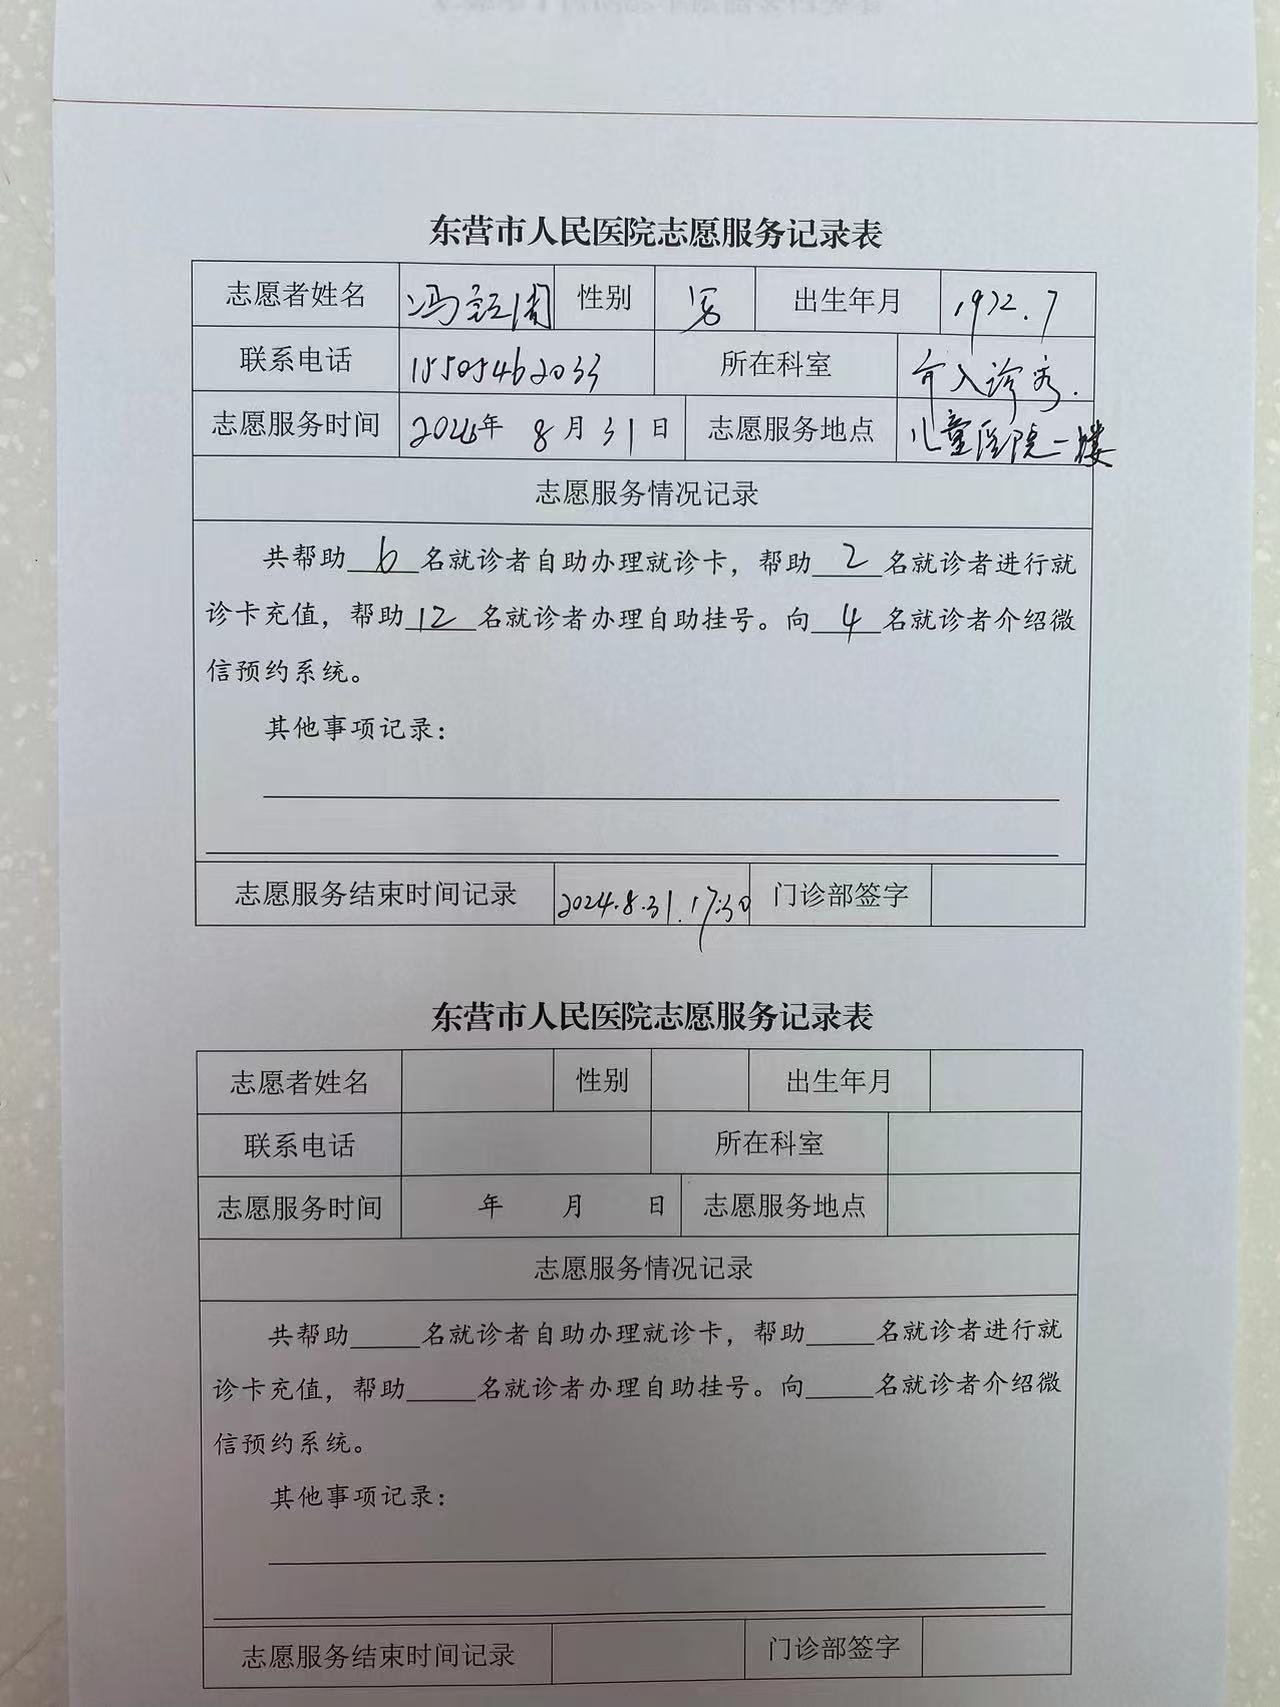 东营市人民医院志愿服务记录表
志愿者姓名 冯 性别 男 出生年月 1972.7
联系电话 15505462033 所在科室 介入诊疗.
志愿服务时间 2024年 8月31日 志愿服务地点 儿童医院一楼
志愿服务情况记录
共帮助 6 名就诊者自助办理就诊卡，帮助 2 名就诊者进行就
诊卡充值，帮助 12 名就诊者办理自助挂号。向 4 名就诊者介绍微
信预约系统。
其他事项记录：
志愿服务结束时间记录 2024.8.31.17:30 门诊部签字
东营市人民医院志愿服务记录表
志愿者姓名 性别 出生年月
联系电话 所在科室
志愿服务时间 年 月 日 志愿服务地点
志愿服务情况记录
共帮助_____名就诊者自助办理就诊卡，帮助_____名就诊者进行就
诊卡充值，帮助_____名就诊者办理自助挂号。向_____名就诊者介绍微
信预约系统。
其他事项记录：
志愿服务结束时间记录 门诊部签字